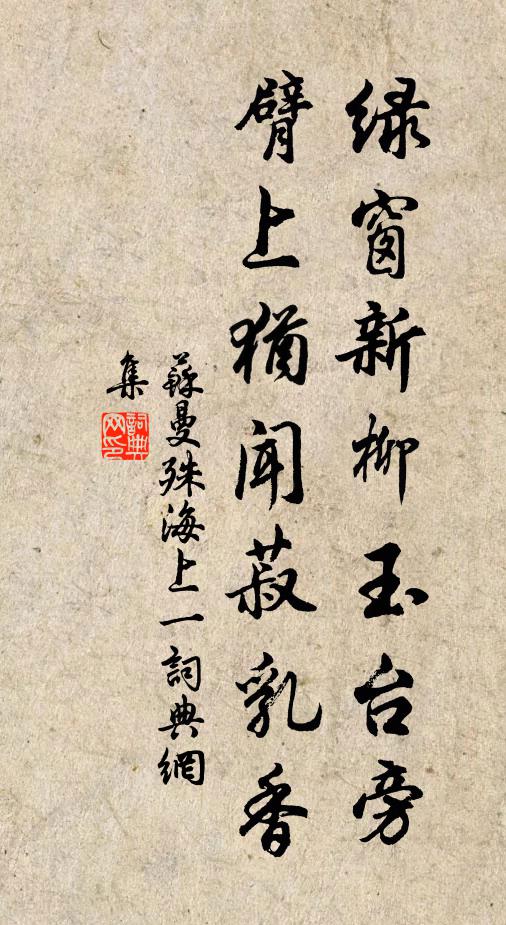 绿窗新柳玉台旁
臂上猶闻菽乳香
蘇曼殊海上一詞典網
集
詞典
网印